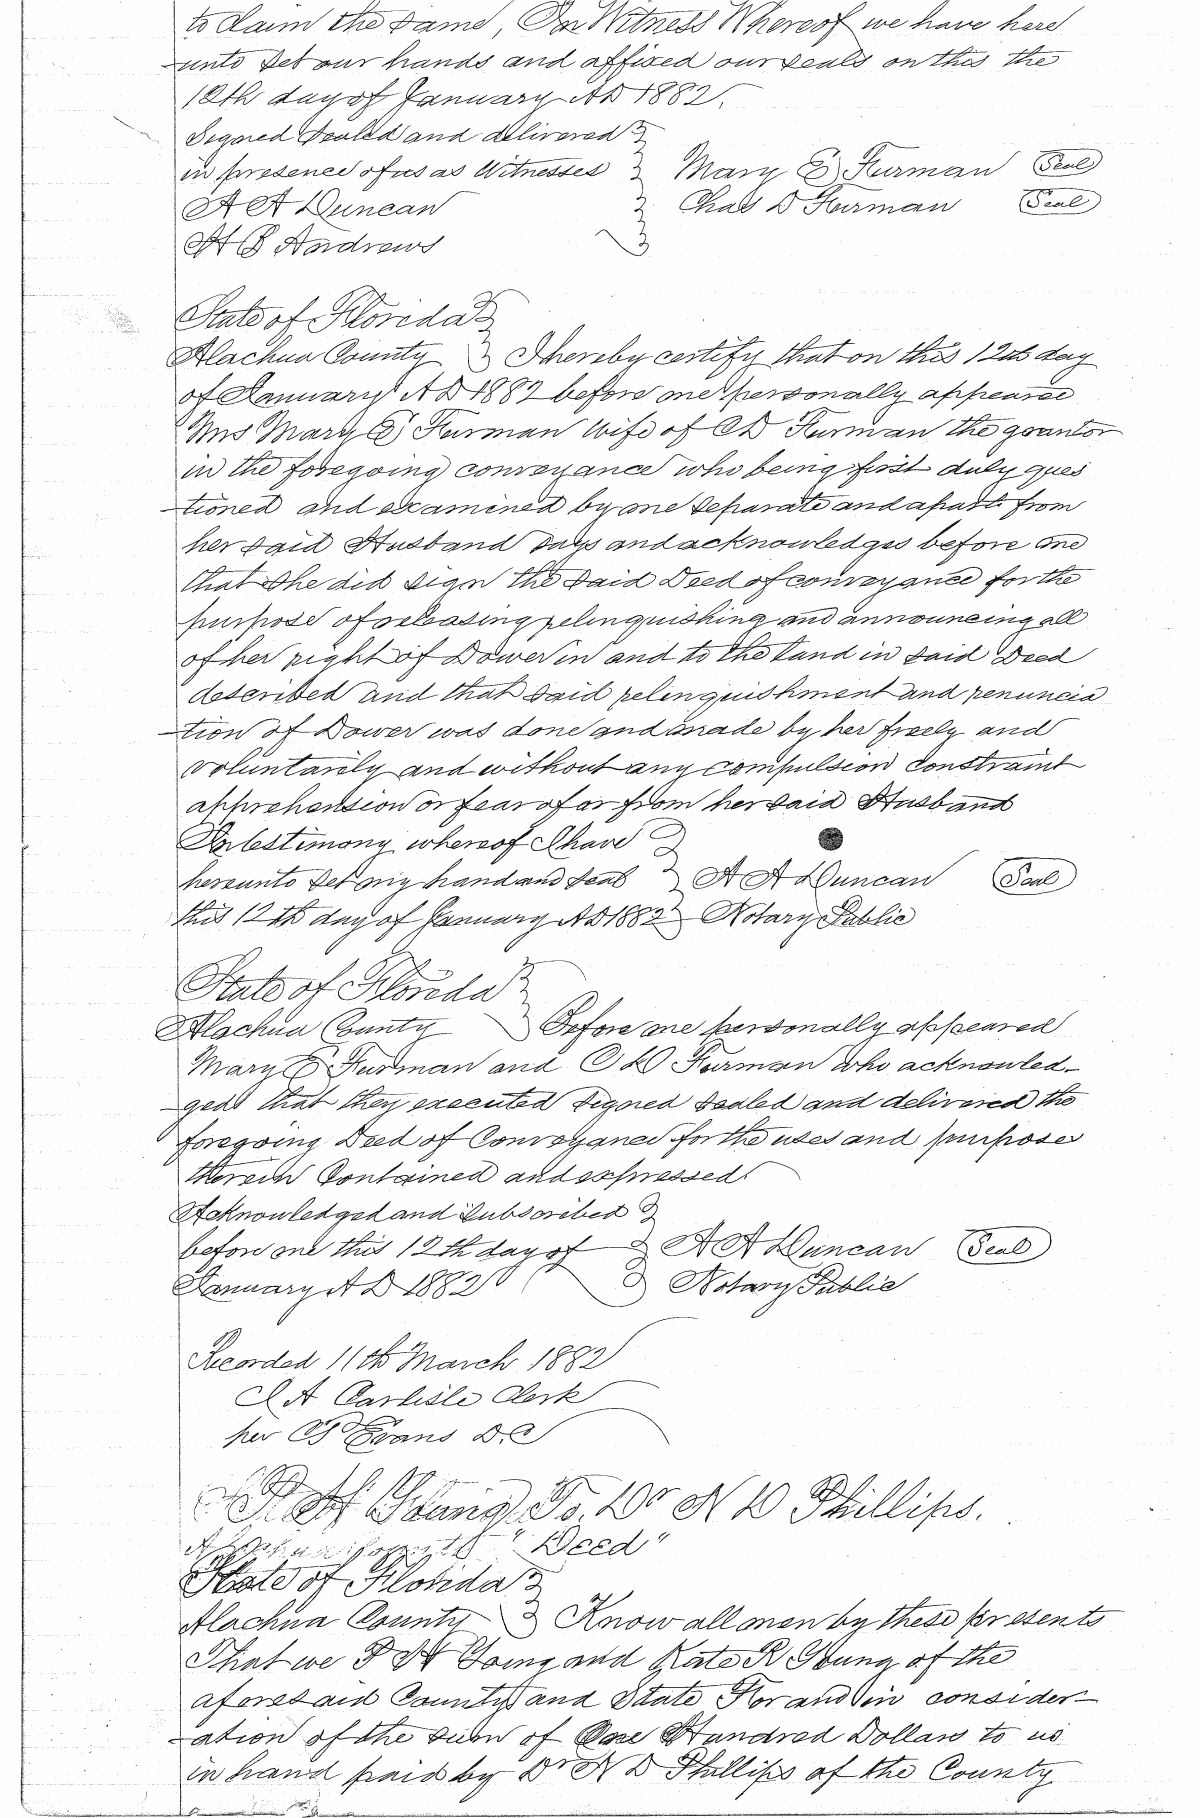 to claim the same, In Witness Whereof we have here
unto set our hands and affixed our seals on this the
12th day of January AD 1882.
Signed Sealed and delivered
in presence of us as Witnesses Mary E Furman Seal
A A Duncan Chas D Furman Seal
H G Andrews
State of Florida
Alachua County I hereby certify that on this 12th day
of January AD 1882 before me personally appeared
Mrs Mary E Furman wife of CD Furman the grantor
in the foregoing conveyance who being first duly ques
tioned and examined by me separate and apart from
her said Husband says and acknowledges before me
that she did sign the said Deed of conveyance for the
purpose of releasing relinquishing and announcing all
of her right of Dower in and to the land in said Deed
described and that said relinquishment and renuncia
tion of Dower was done and made by her freely and
voluntarily and without any compulsion Constraint
apprehension or fear of or from her said Husband
In testimony whereof I have
hereunto set my hand and seal A A Duncan Seal
this 12th day of January AD 1882 Notary Public
State of Florida
Alachua County Before me personally appeared
Mary E Furman and C D Furman who acknowled-
ged that they executed signed sealed and delivered the
foregoing Deed of Conveyance for the uses and purposes
therein Contained and expressed.
Acknowledged and Subscribed
before me this 12th day of A A Duncan Seal
January AD 1882 Notary Public
Recorded 11th March 1882
J A Carlisle Clerk
per Evans D.C
P. H Young To. Dr N D Phillips.
"Deed"
State of Florida
Alachua County Know all men by these presents
That we P H Young and Kate R Young of the
aforesaid County and State For and in consider-
ation of the sum of One Hundred Dollars to us
in hand paid by Dr N D Phillips of the County